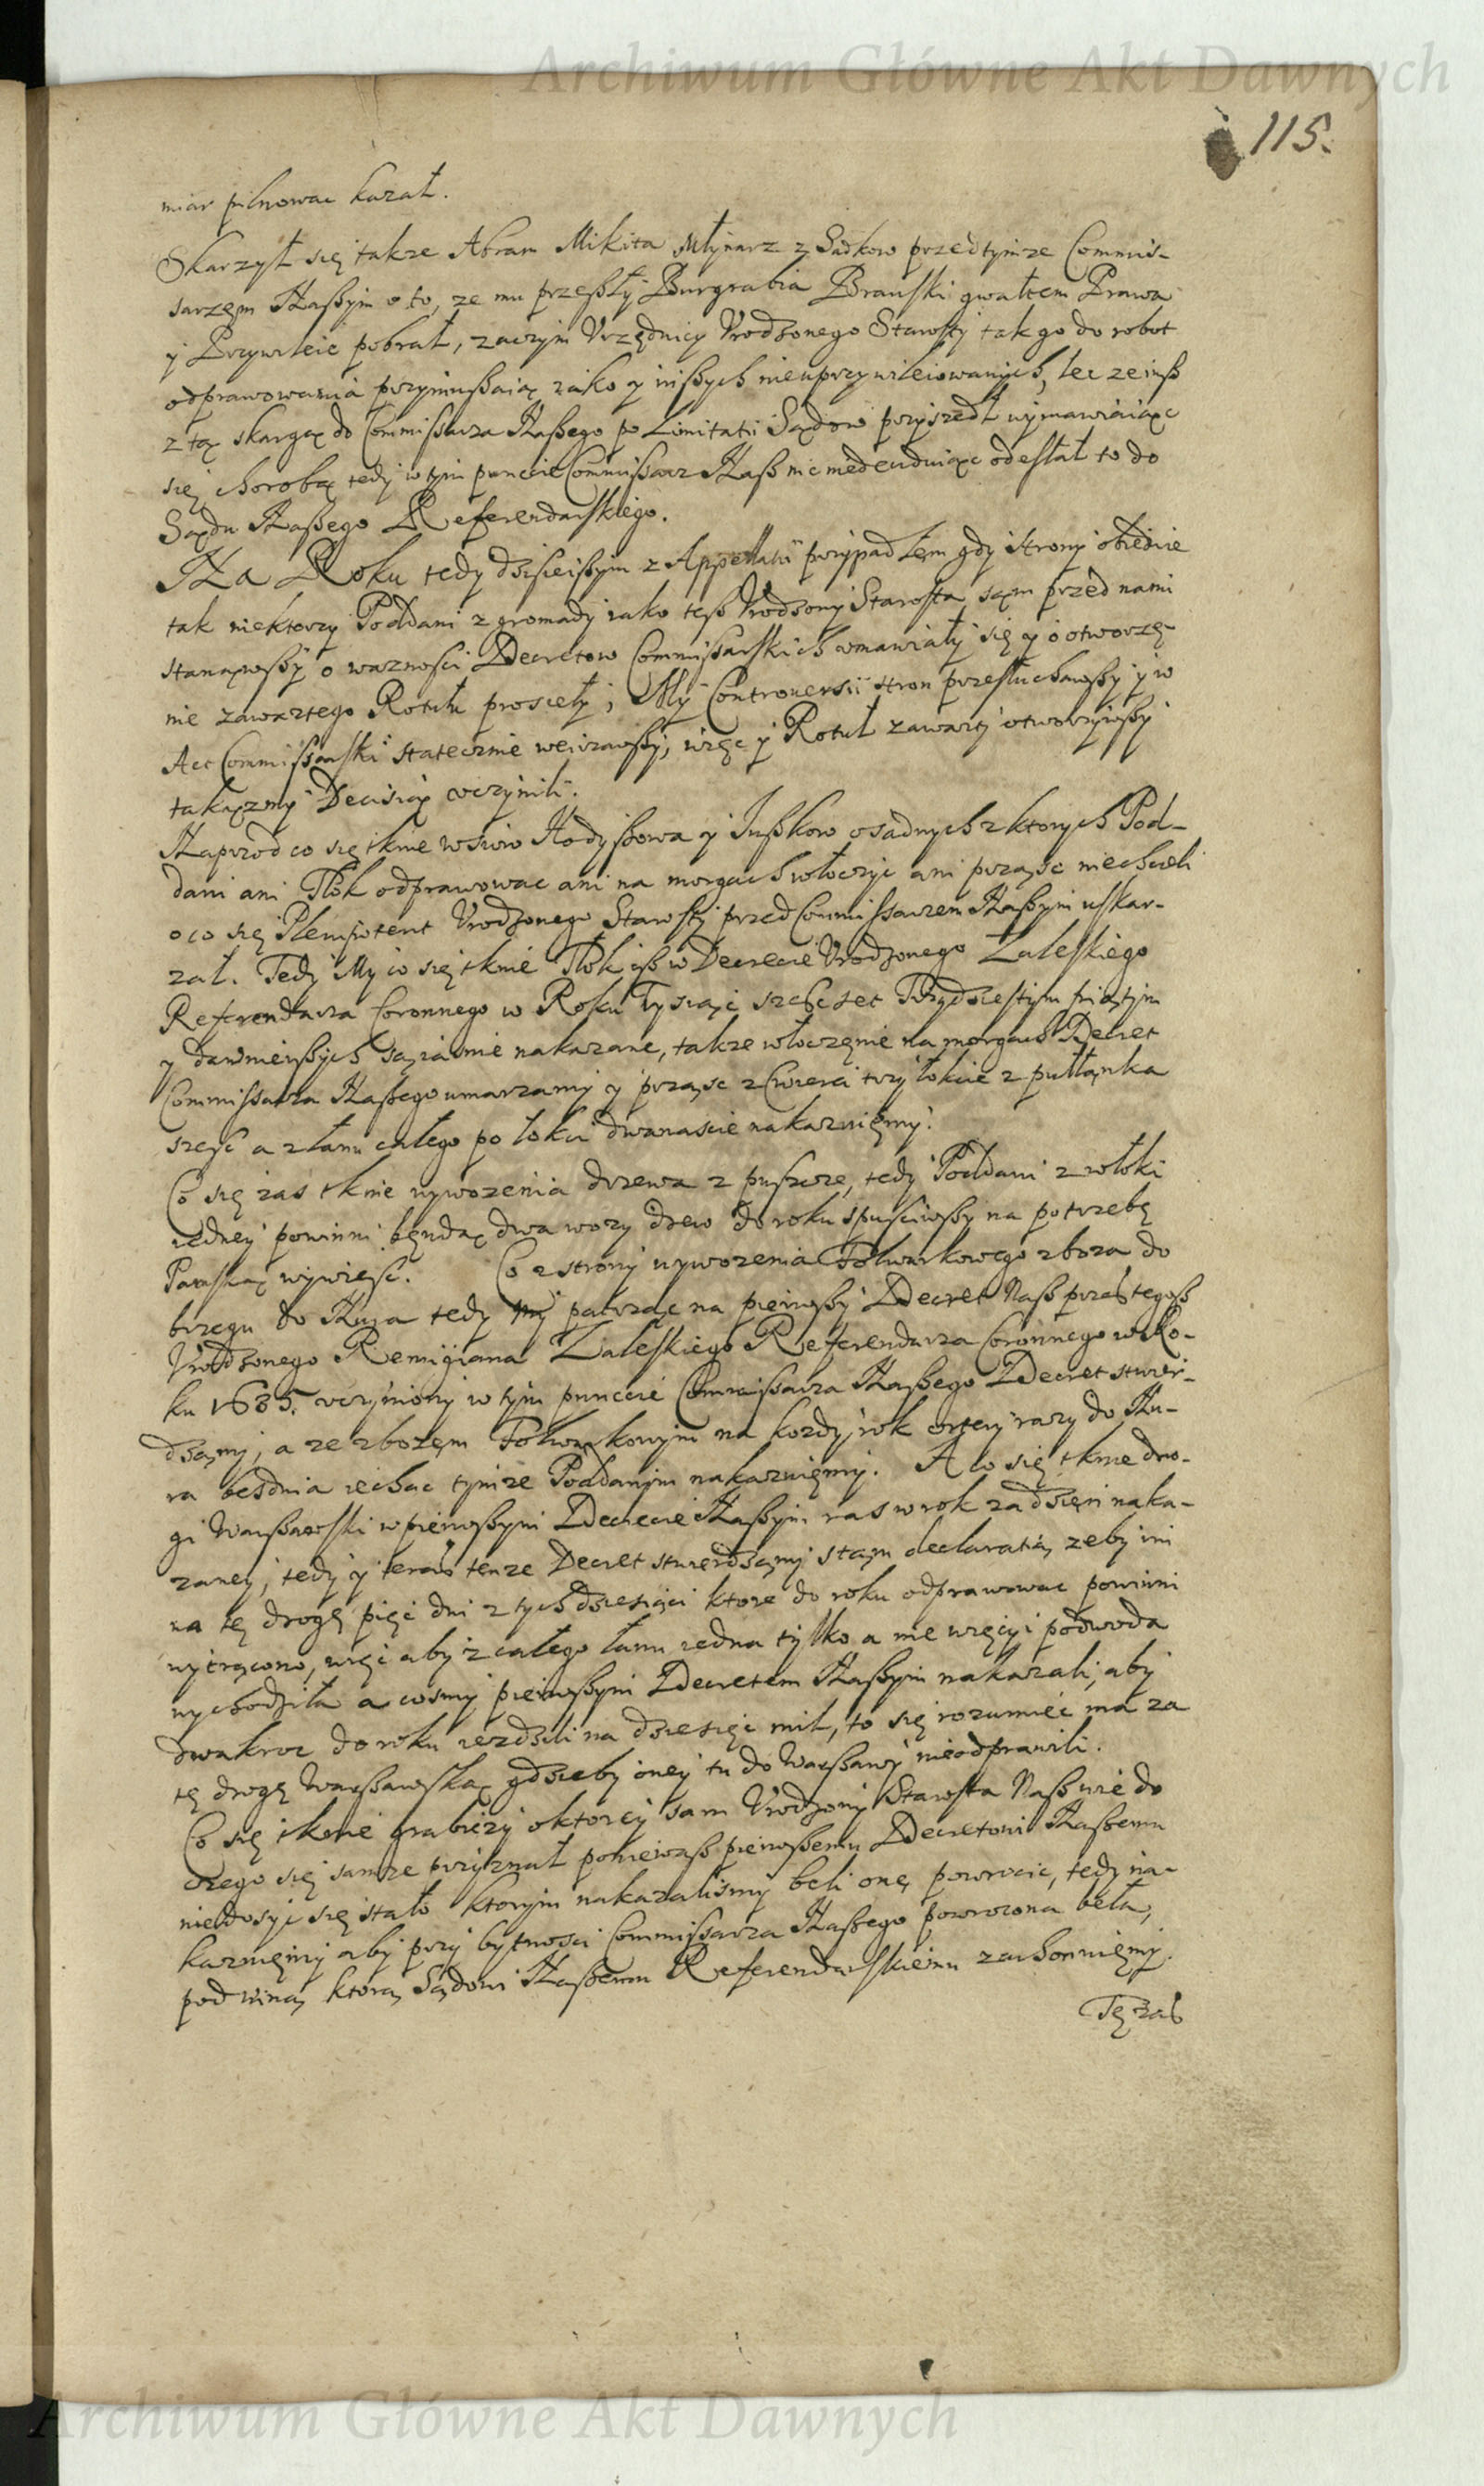 Archiwum Główne Akt Dawnych
115.
miar pilnowac kazał.
Skarzył się takze Abram Mikita Młynarz z Sadkow przed tymze Commis-
sarzęm Naßym o to, ze mu przeßły Burgrabia Branski gwałtem Prawa
y Przywileie pobrał, zaczym Vrzędnicy Vrodzonego Starosty tak go do robot
odprawowania przymußaią iako y inßych nieuprzywileiowanych, lec ze iuß
z tą skargą do Commißarza Naßego po Limitatii Sądow przyszedł wymawiaiąc
się chorobą tedy w tym punccie Commissarz Naß nic niedeciduiąc odesłał to do
Sądu Naßego Referendarskiego.
Na Roku tedy dzisieißym z Appellatii przypadłem gdy strony obiedwie
tak niektorzy Poddani z gromady iako teß Vrodzony Starosta sąm przed nami
stanąwßy o waznosci Decretow Commißarskich vmawiały się y o otworzę-
nie zawartego Rotułu prosieły; My Controversii stron przesłuchawßy y w
Act Commißarski statecznie weirzawßy, więc y Rotuł zawarty otworzywßy
takązmy Decisią vczynili.
Naprzod co się tknie wsiow Hodyßowa y Jußkow osadnych z ktorych Pod-
dani ani Tłok odprawowac ani na morgach włoczyc ani prząsc niechcieli
o co się Plenipotent Vrodzonego Starosty przed Commissarzem Naßym uskar-
zał. Tedy My co się tknie Tłok iß w Decrecie Vrodzonego Zaleskiego
Referendarza Coronnego w Roku Tysiąc szesc set Trzydziestym piątym
y dawnieißych są iasnie nakazane, takze włoczęnie na morgach Decret
Commissarza Naßego umarzamy y prząsc z Cwierci trzy łokcie z pułłanka
szesc a z łanu całego po łokci dwanascie nakazuięmy.
Co się zas tknie wywozenia drzewa z puszcze, tedy Poddani z włoki
iedney powinni będą dwa wozy drew do roku spusciwßy na potrzebę
Panską wywiesc. Co z strony wywozenia Folwarkowego zboza do
brzegu do Nura tedy my patrząc na pierwßy Decret Naß przes tegoß
Vrodzonego Remigiana Zaleskiego Referendarza Coronnego w Ro-
ku 1635. vczyniony w tym punccie Commissarza Naßego Decret stwier-
dzamy, a ze zbozęm Folwarkowym na kozdy rok cztery razy do Nu-
ra beß dnia iechac tymze Poddanym nakazuięmy. A co się tknie dro-
gi Warßawski w pierwßym Decrecie Naßym ras w rok za dzięn naka-
zaney, tedy y teras tenze Decret stwierdzamy s tąm declaratią zeby im
na tę drogę pięc dni z tych dziesiąci ktore do roku odprawowac powinni
wytrącono, więc aby z całego łanu iedna tylko a nie więcy podwoda
wychodziła a cosmy pierwßym Decretem Naßym nakazali, aby
dwakroc do roku iezdzili na dziesięc mil, to się rozumiec ma za
tę drogę Warßawską gdzieby oney tu do Warßawy nieodprawili.
Co się tknie grabiezy o ktorey sam Vrodzony Starosta Naß wie do
czego się samze przyznał poniewaß pierwßemu Decretowi Naßemu
niedosyc się stało ktorym nakazalismy beli onę powrocic, tedy na-
kazuięmy aby przy bytnosci Commissarza Naßego powrocona beła,
pod winą ktorą Sądowi Naßemu Referendarskiemu zachowuięmy.
Tę zas
Archiwum Główne Akt Dawnych